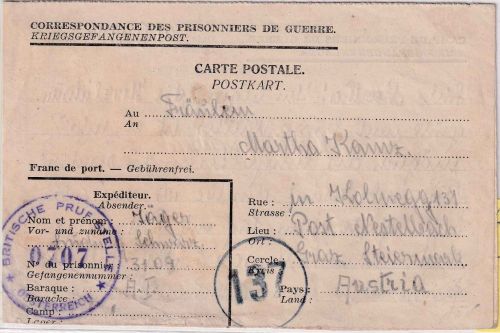 CORRESPONDANCE DES PRISONNIERS DE GUERRE.
KRIEGSGEFANGENENPOST.
CARTE POSTALE.
POSTKART.
Au Fräulein
An
Martha
Franc de port. — Gebührenfrei.
Expéditeur.
Absender.
Nom et prénom: Jäger
Vor- und zuname:
No du prisonnier 3109
Gefangenennummer:
Baraque:
Baracke
Camp:
Lager:
Rue: in 131
Strasse:
Lieu: Post Nestelbach
Ort:
Cercle: Graz Steiermark
Kreis
Pays: Austria
Land:
BRITISCHE PRUEFSTELLE
ÖSTERREICH
137